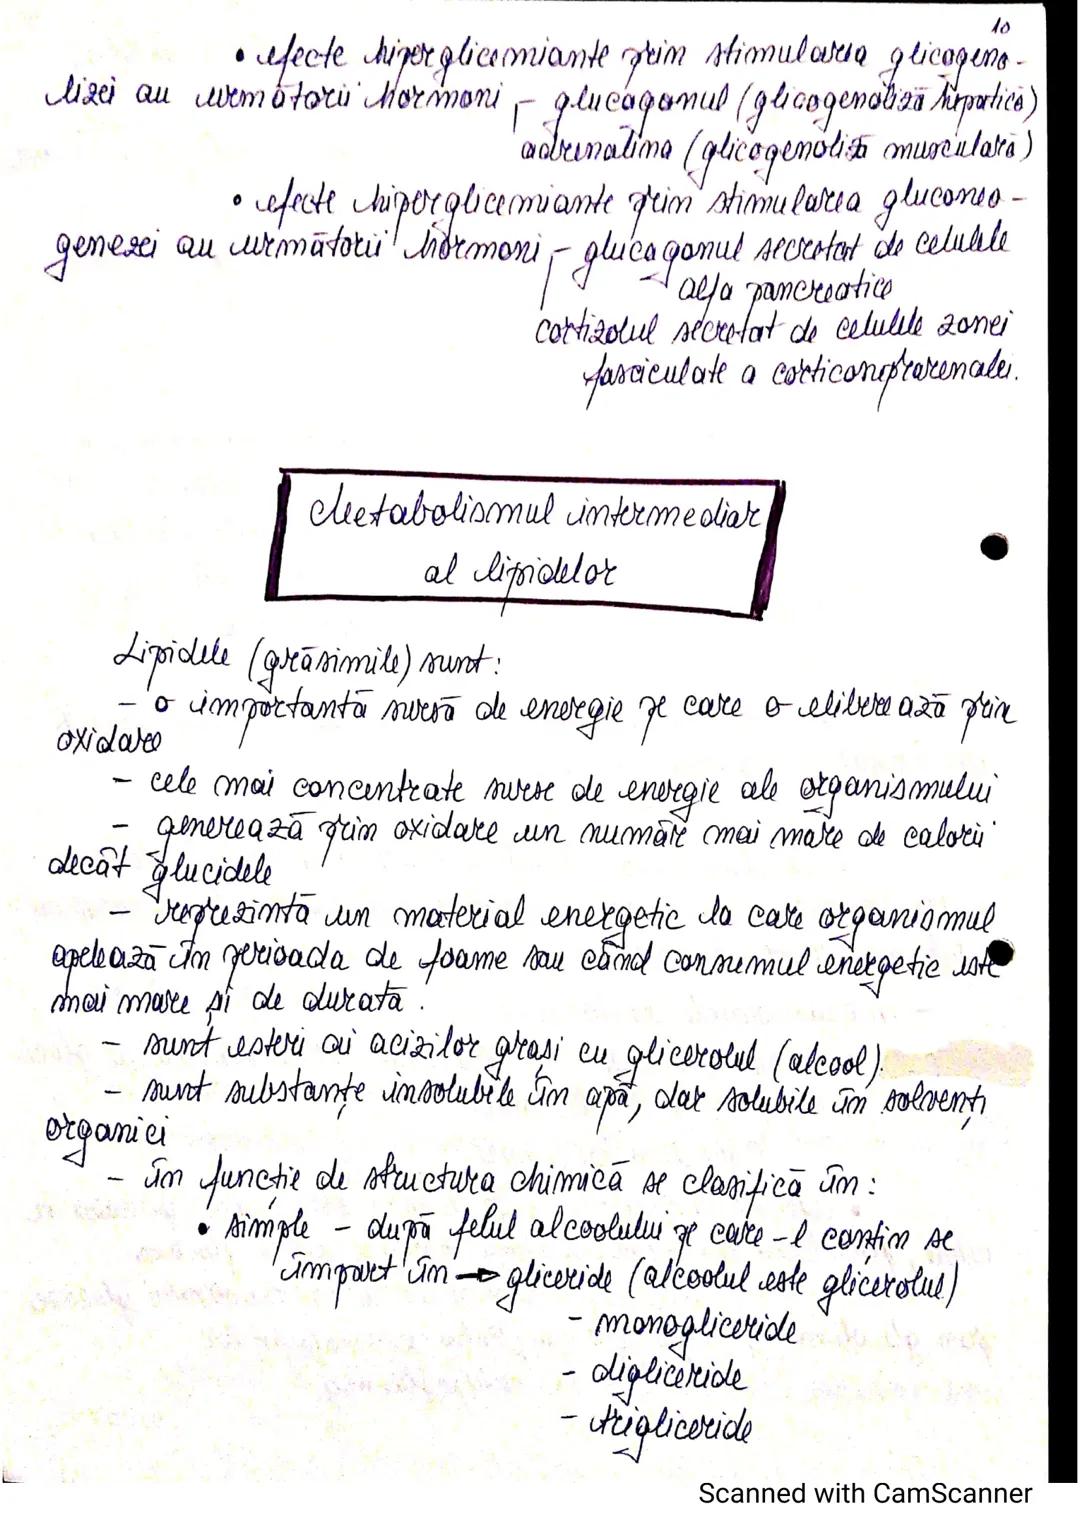 10
• efecte hiperglicemiante prin stimularea glicogeno-
lizei au următorii hormoni - glucagonul (glicogenoliză hepatică)
adrenalina (glicogenoliză musculară)
• efecte hiperglicemiante prin stimularea gluconeo-
genezei au următorii hormoni - glucagonul secretat de celulele
alfa pancreatice
cortizolul secretat de celulele zonei
fasciculate a corticosuprarenalei.
Metabolismul intermediar
al lipidelor
Lipidele (grăsimile) sunt:
- o importantă sursă de energie pe care o eliberează prin
oxidare
- cele mai concentrate surse de energie ale organismului
- generează prin oxidare un număr mai mare de calorii
decât glucidele
- reprezintă un material energetic la care organismul
apelează în perioada de foame sau când consumul energetic este
mai mare și de durată.
- sunt esteri ai acizilor grași cu glicerolul (alcool).
- sunt substanțe insolubile în apă, dar solubile în solvenți
organici
- în funcție de structura chimică se clasifică în:
• simple - după felul alcoolului pe care-l conțin se
împart în → gliceride (alcoolul este glicerolul)
- monogliceride
- digliceride
- trigliceride
Scanned with CamScanner